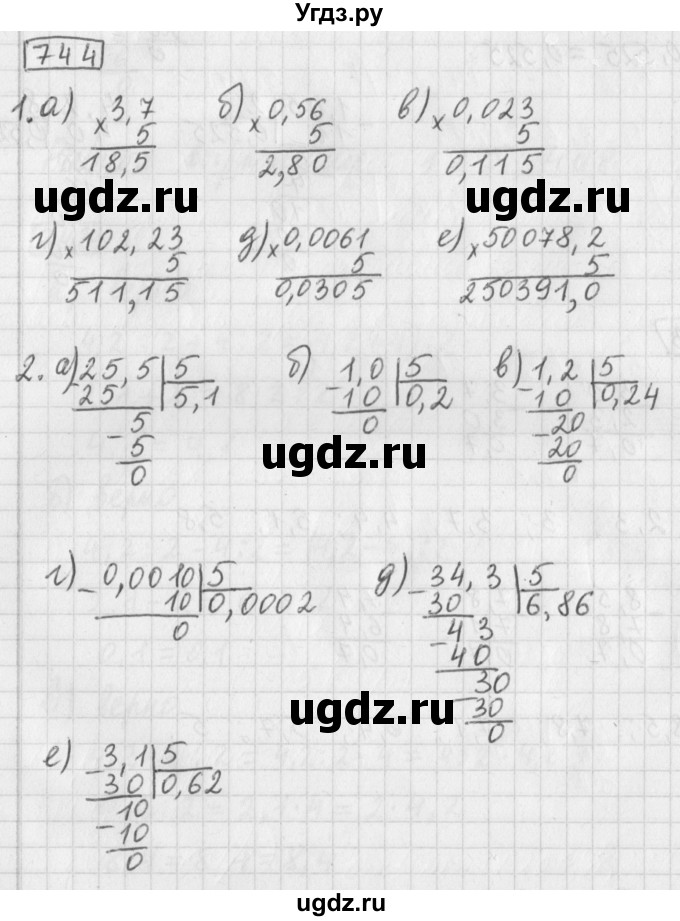 Угдз.ру
744
1. а) × 3,7 б) × 0,56 в) × 0,023
5 5 5
18,5 2,80 0,115
ugdz.ru ugdz.ru
г) × 102,23 д) × 0,0061 е) × 50078,2
5 5 5
511,15 0,0305 250391,0
2. а) - 25,5 | 5 б) - 1,0 | 5 в) - 1,2 | 5
25 5,1 10 0,2 10 0,24
- 5 0 - 20
5 20
0 0
ugdz.ru
г) - 0,0010 | 5 д) - 34,3 | 5
10 0,0002 30 6,86
0 - 43
40
30
ugdz.ru - 30
0
е) - 3,1 | 5
30 0,62
10
- 10
0
ugdz.ru